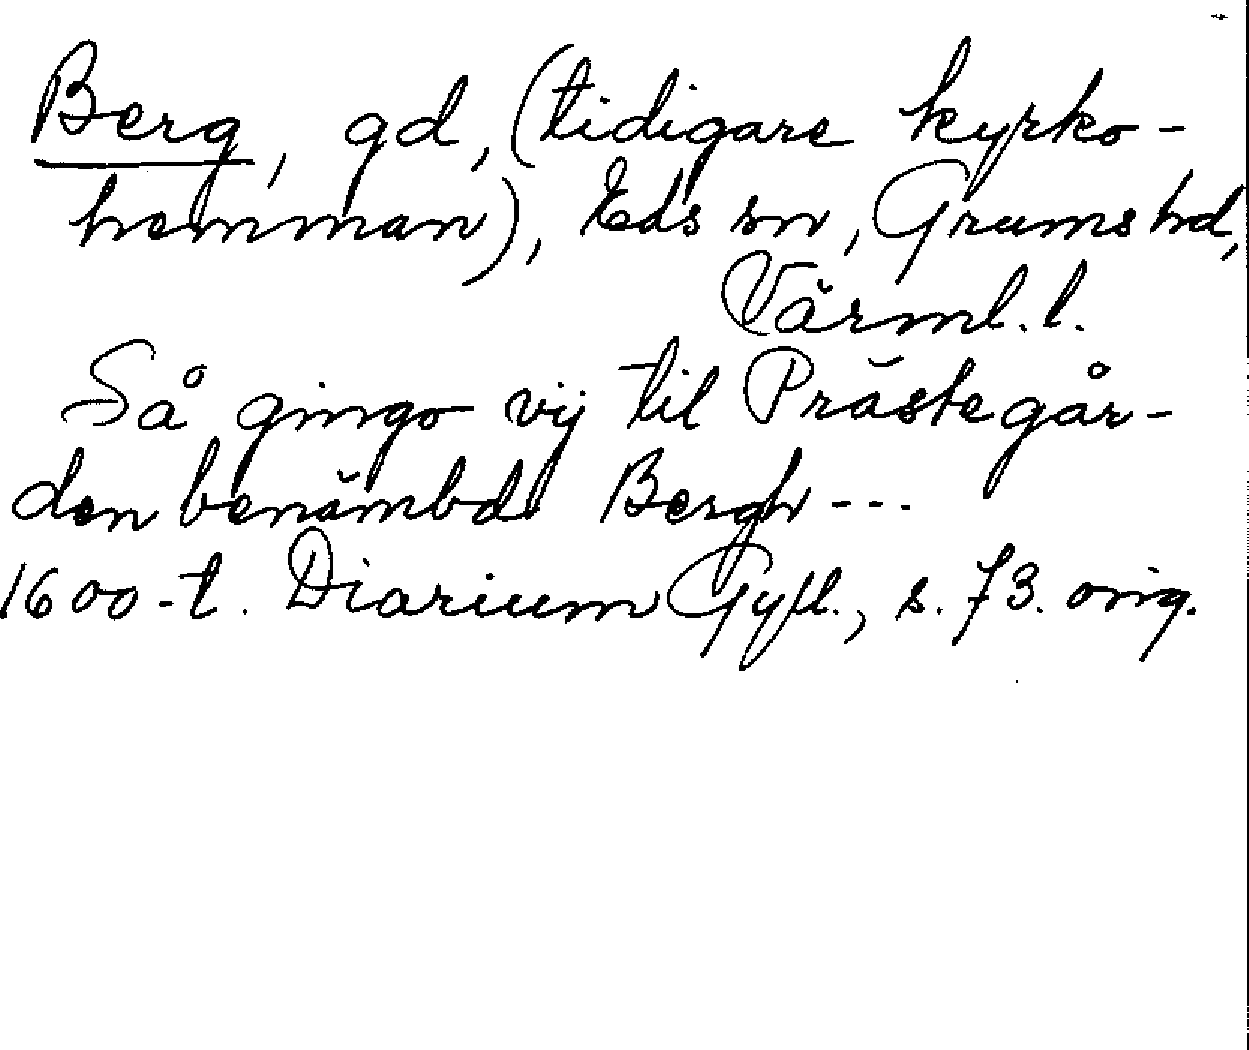 Berg, gd, (tidigare kyrko-
hemman), Eds sn, Grums hd,
Värml. l.
Så gingo vij til Prästegår-
den benämbd Bergh ---
1600-t. Diarium Gyll., s. 73. orig.